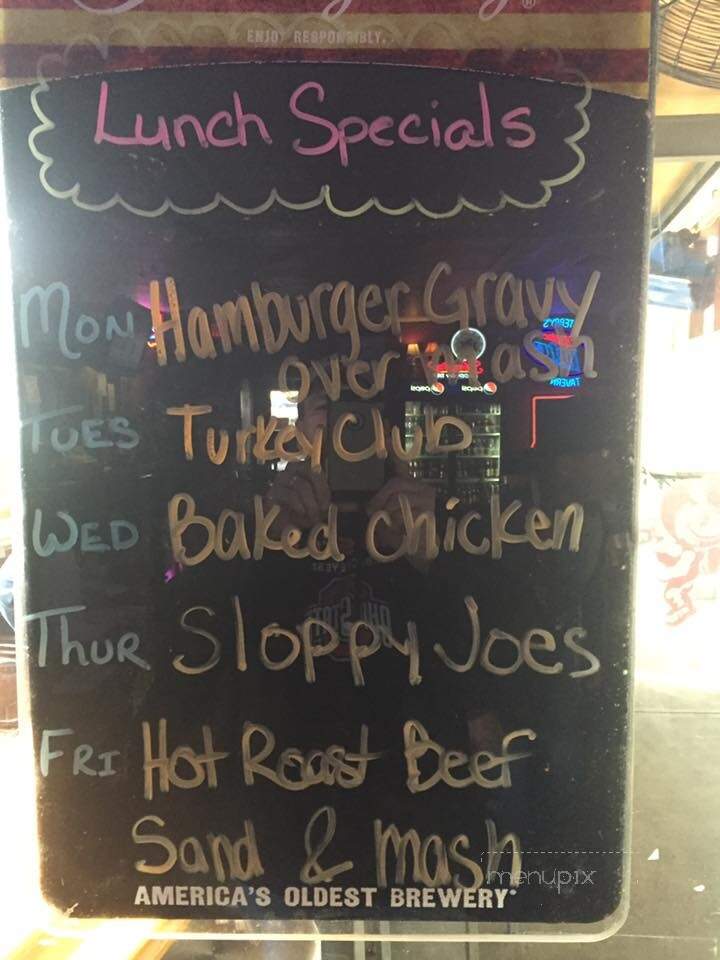 ENJOY RESPONSIBLY.
Lunch Specials
MON Hamburger Gravy
over mash
TUES Turkey Club
WED Baked Chicken
THUR Sloppy Joes
FRI Hot Roast Beef
Sand & mash
menupix
AMERICA'S OLDEST BREWERY
TERRY'S
TAVERN
pepsi
pepsi
OHIO STATE